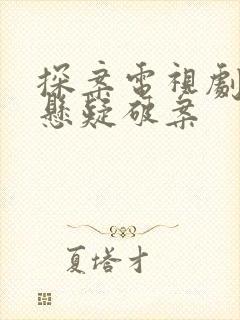 探案電視劇
懸疑破案
夏塔才